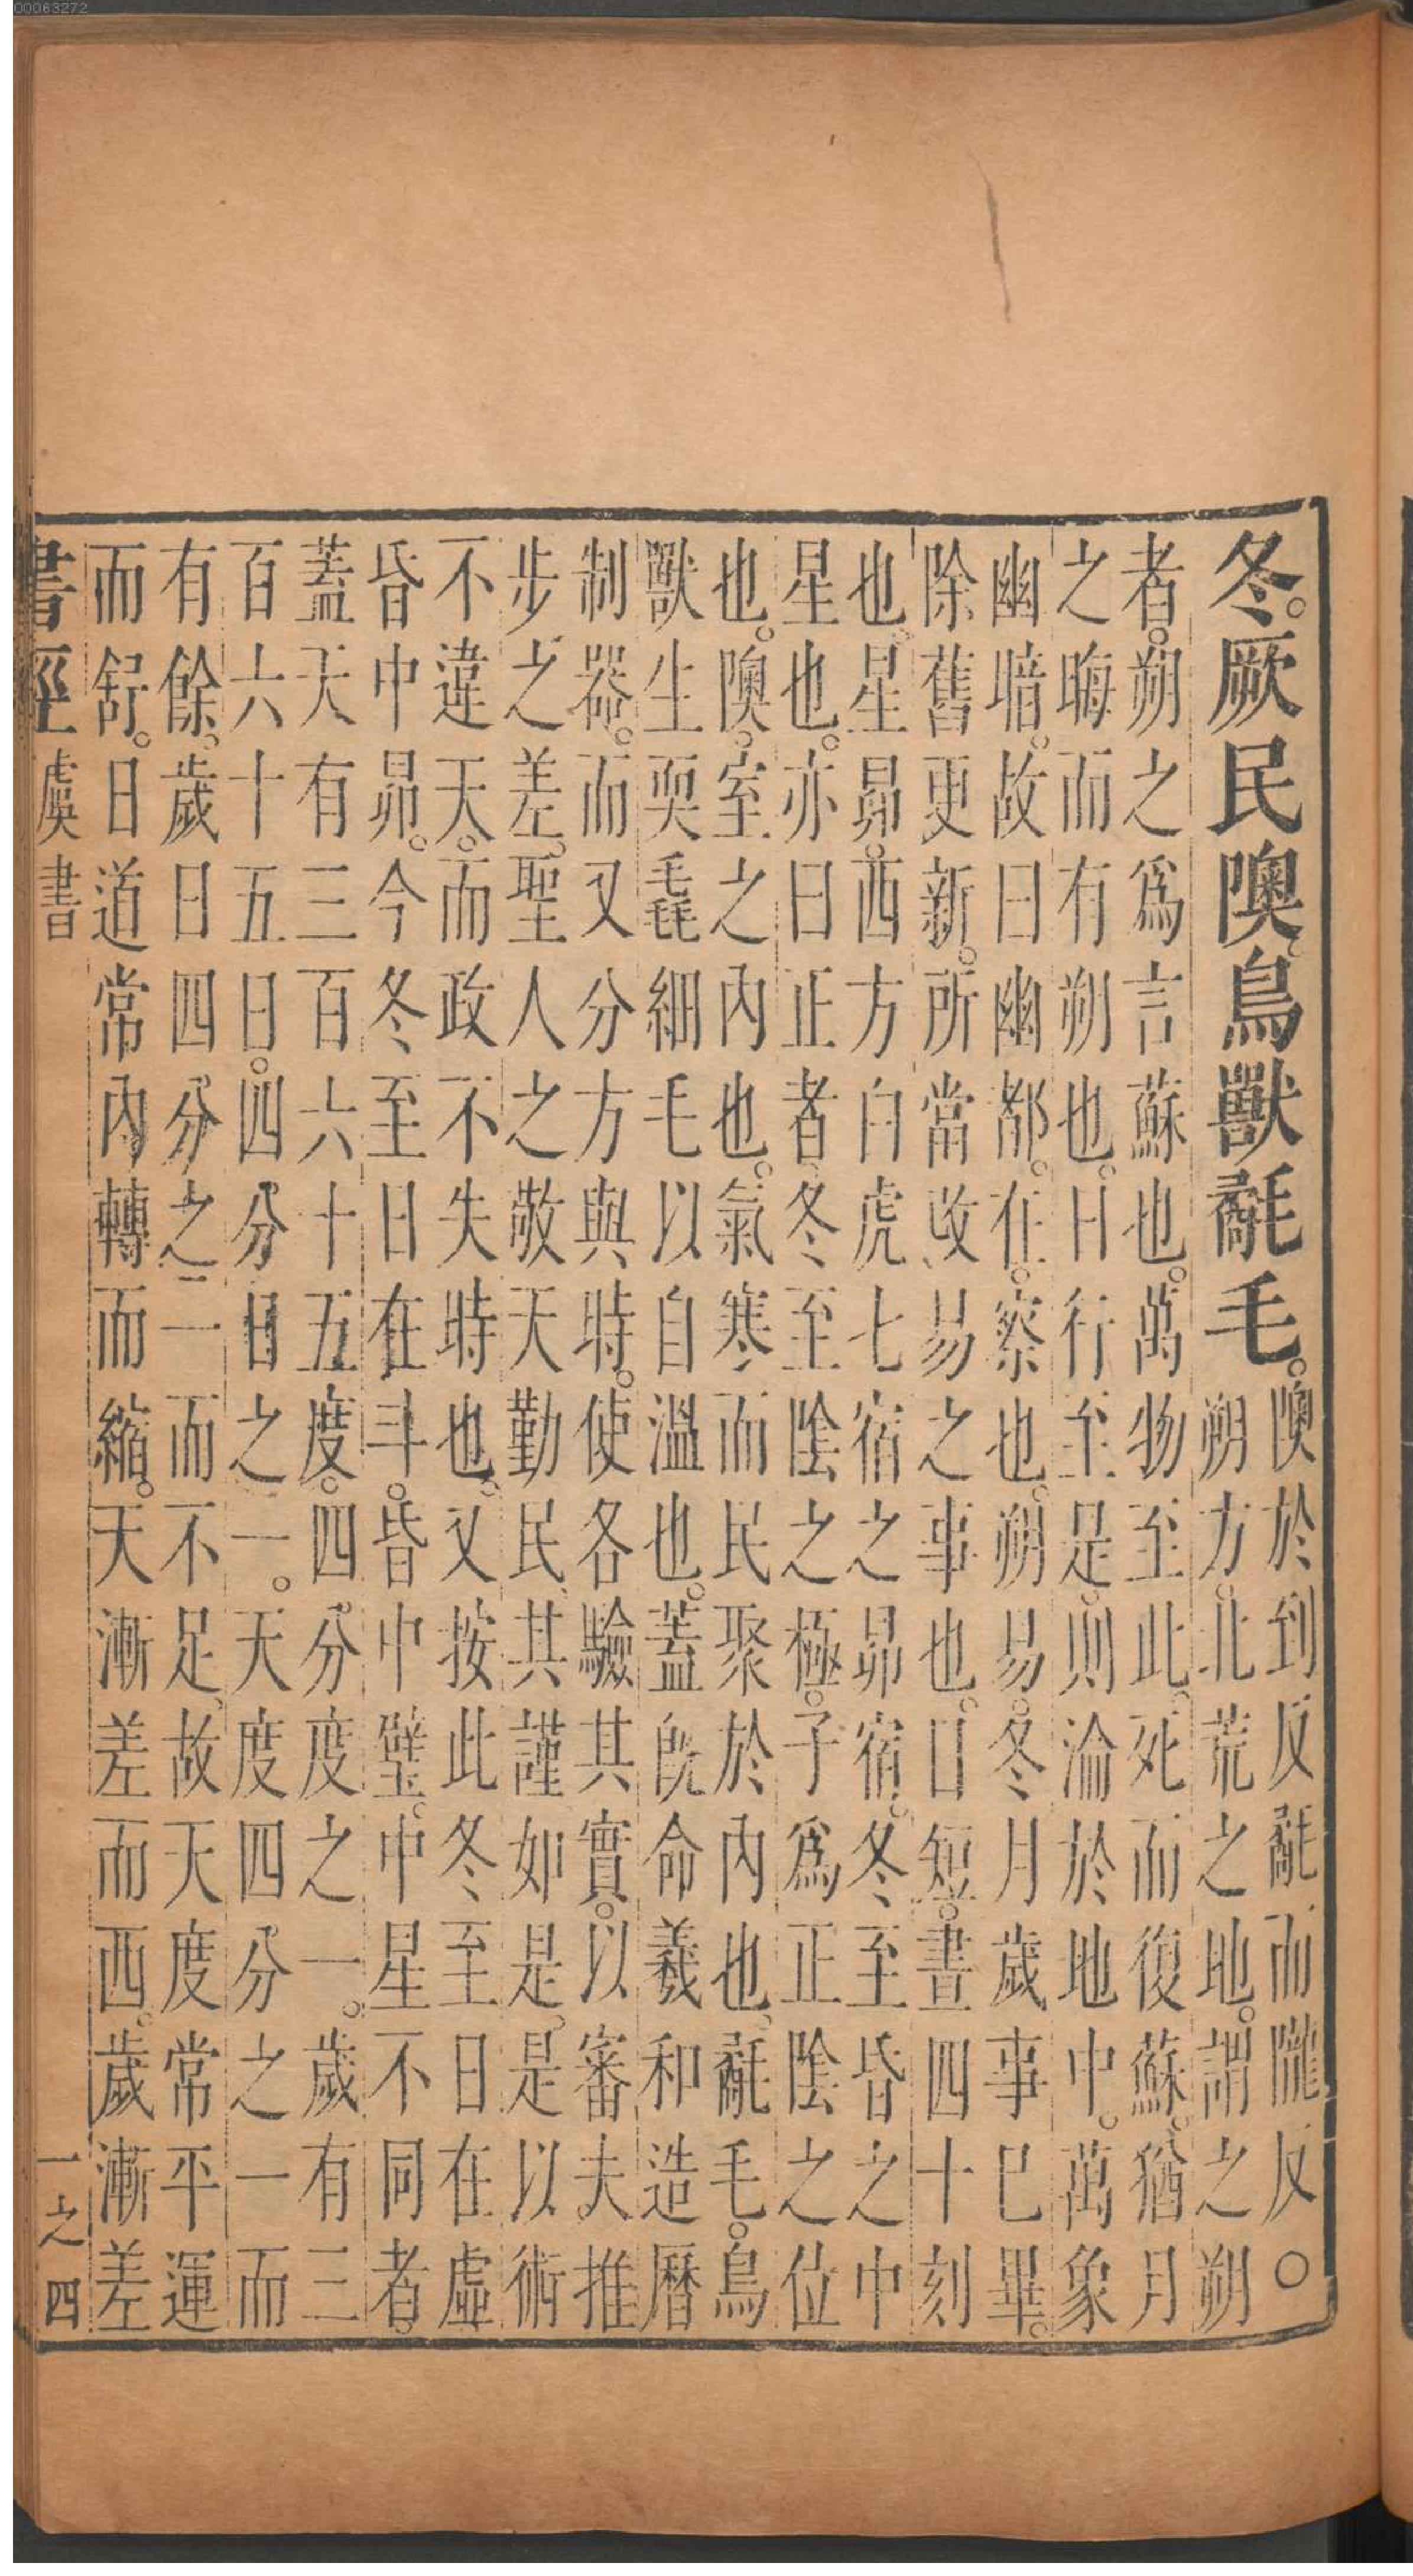 00063272
冬。厥民隩。鳥獸氄毛。
隩於到反氄而隴反○
朔方。北荒之地。謂之朔
者。朔之爲言蘇也。萬物至此。死而復蘇。猶月
之晦而有朔也。日行至是。則淪於地中。萬象
幽暗。故曰幽都。在。察也。朔易。冬月歲事巳畢。
除舊更新。所當改易之事也。日短。晝四十刻
也。星昴。西方白虎七宿之昴宿。冬至昏之中
星也。亦曰正者。冬至陰之極。子爲正陰之位
也。隩。室之內也。氣寒而民聚於內也。氄毛。鳥
獸生耎毳細毛以自溫也。蓋旣命羲和造曆
制器。而又分方與時。使各驗其實。以審夫推
步之差。聖人之敬天勤民、其謹如是。是以術
不違天。而政不失時也。又按此冬至日在虛
昏中昴。今冬至日在斗。昏中璧。中星不同者。
蓋天有三百六十五度。四分度之一。歲有三
百六十五日。四分日之一。天度四分之一而
有餘。歲日四分之一而不足。故天度常平運
而舒。日道常內轉而縮。天漸差而西。歲漸差
書經 虞書 一之四